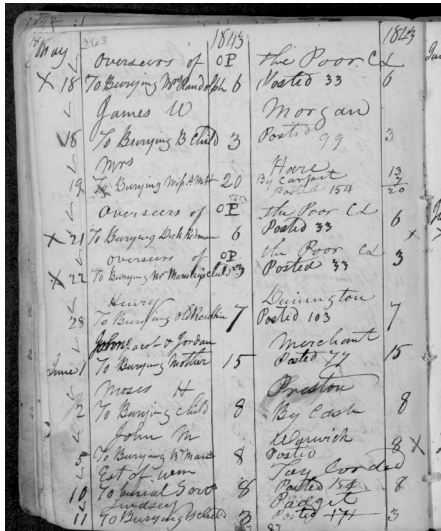 1843 1843
May 263
overseers of OP the Poor Cd
X 18 To Burying Wm Randolph 6 Posted 33 6
James W Morgan
18 To Burying B Child 3 Posted 99 3
Mrs Hare
19 To Burying 20 By Carpet 13
Posted 154 20
overseers of OP the Poor Cd
X 21 To Burying Dick Redman 6 Posted 33 6
overseers of OP the Poor Cd
X 22 To Burying Mr child 3 Posted 33 3
Henry Dunington
28 To Burying old 7 Posted 103 7
& Jordan Merchant
June 1 To Burying Mother 15 Posted 77 15
Moses H Preston
2 To Burying child 8 By Cash 8
John M Warwick
5 To Burying 8 Posted 8
Est of
10 To burial 8 Posted 8
Lindsey Padget
11 To Burying child 3 Posted 3